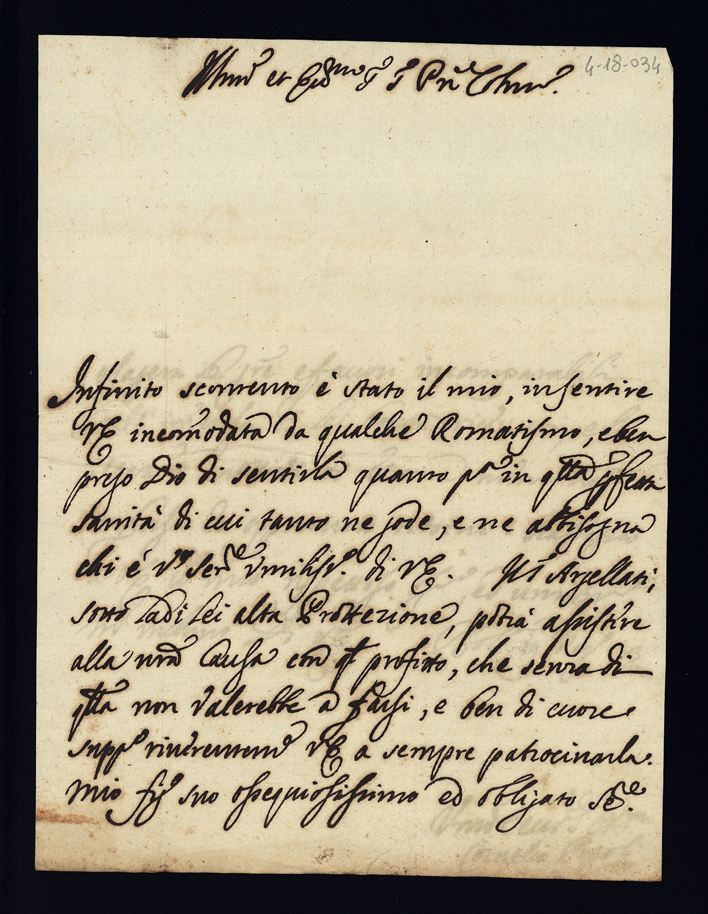 4-18-034
Illmo et Ecc.mo Sig.r Sig.r Pñe Colmo.
Infinito scontento è stato il mio, in sentire
VE incom̃odata da qualche Romatismo, e ben
prego Dio di sentirla quanto p.a in q̃lla p̃fetta
sanità di cui tanto ne gode, e ne abbisogna
chi è v.o ser.e Vmiliss.o di VE. Argellati,
sotto la di lei alta Prottezione, potrà assistere
alla nrã Causa con q̃l profitto, che senza di
q̃lla non valerebbe a farsi, e ben di cuore
supp.o riverentem.e VE a sempre patrocinarla.
mio fig.o suo ossequiosissimo ed obligato Se.e